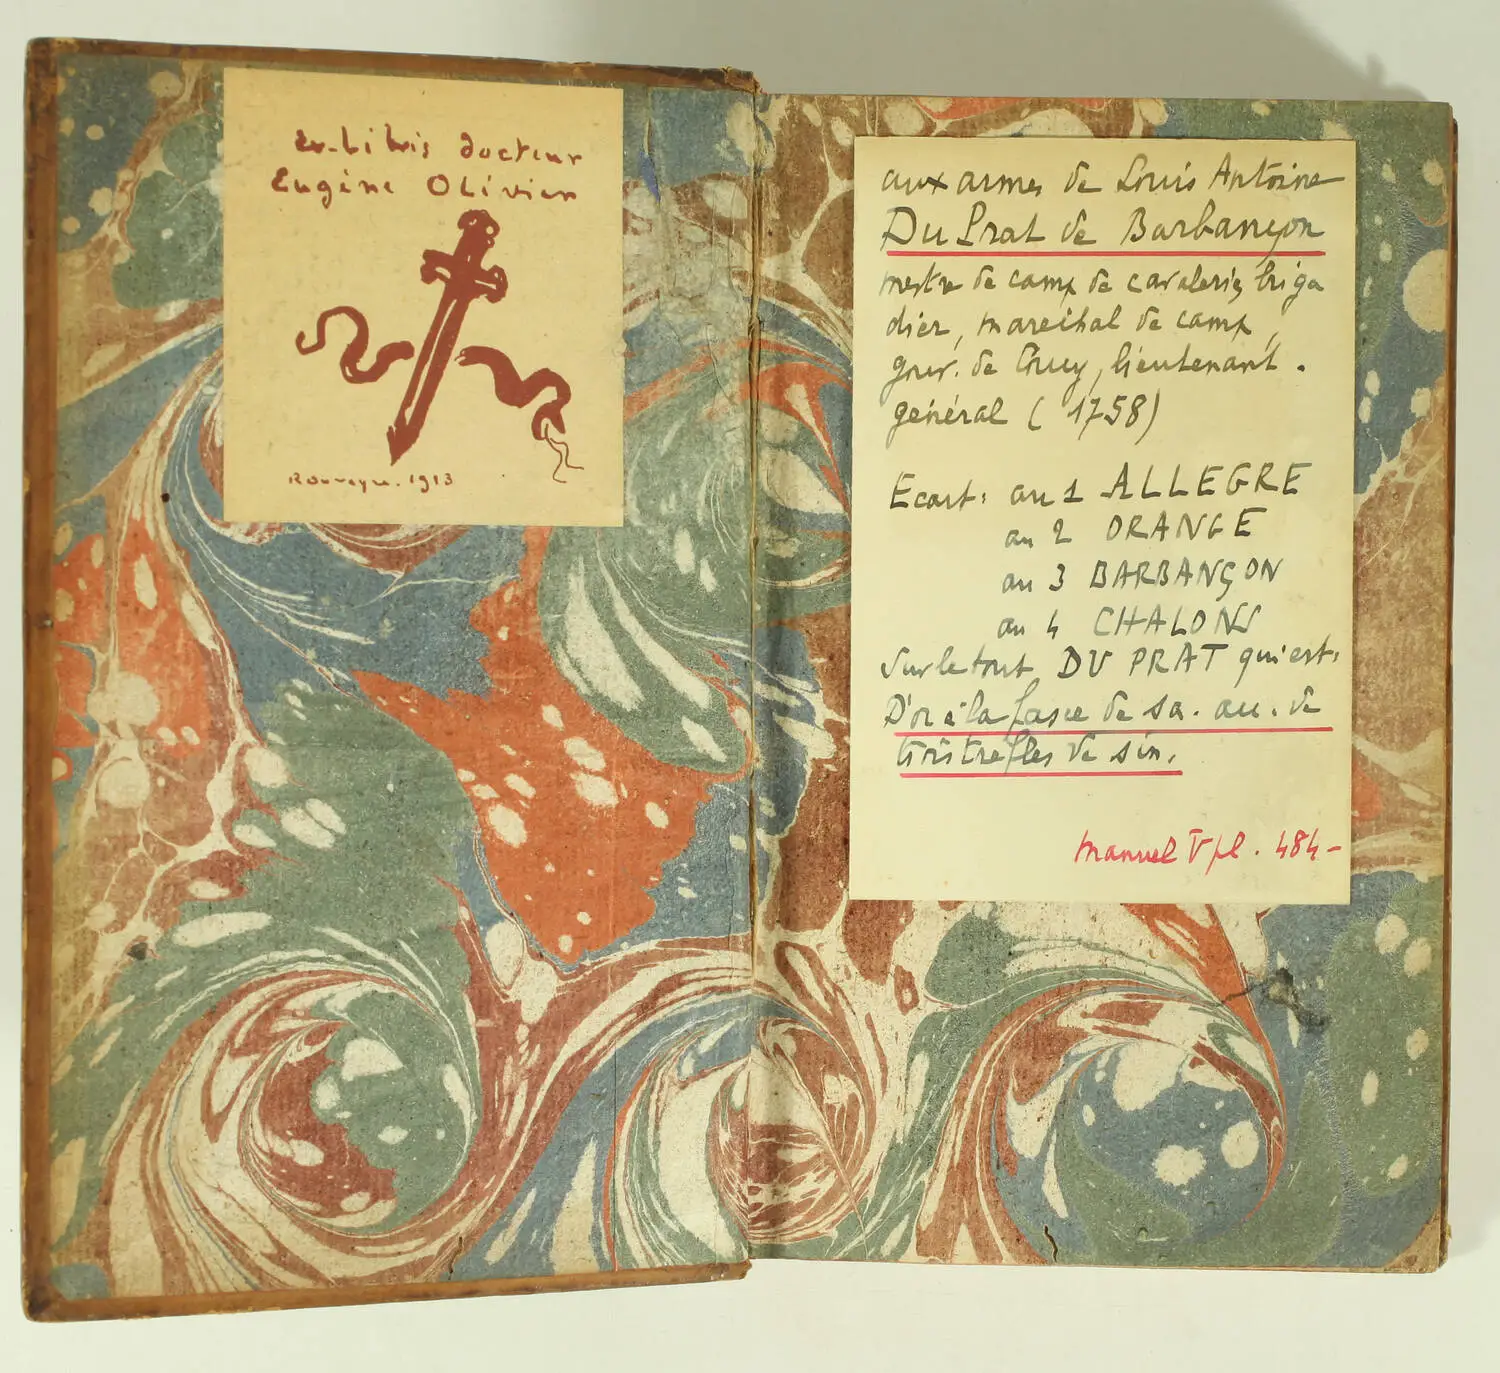 Ex-Libris docteur
Eugène Olivier
Rouveyre. 1913
aux armes de Louis Antoine
Du Prat de Barbançon
mestre de camp de cavalerie, briga
dier, marechal de camp,
gouv. de Coucy, lieutenant.
général (1758)
Ecart: au 1 ALLEGRE
au 2 ORANGE
au 3 BARBANÇON
au 4 CHALONS
Sur le tout DU PRAT qui est:
D'or à la fasce de sa. ac. de
trois trefles de sin.
Manuel V pl. 484-